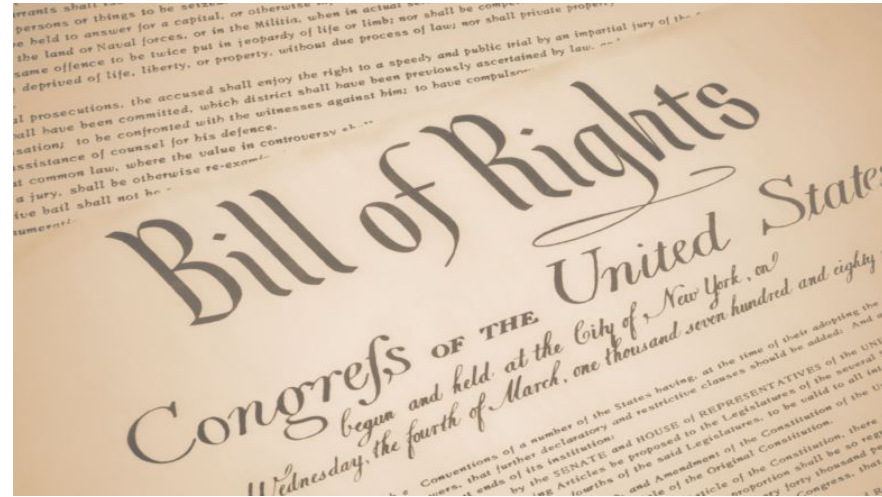 rrants shall
persons or things to be seized
held to answer for a capital, or otherwise
the land or Naval forces, or in the Militia, when in actual
same offence to be twice put in jeopardy of life or limb; nor shall be
deprived of life, liberty, or property, without due process of law; nor shall private property
al prosecutions, the accused shall enjoy the right to a speedy and public trial by an impartial jury of the
all have been committed, which district shall have been previously ascertained by law,
sation; to be confronted with the witnesses against him; to have compulsor
ssistance of counsel for his defence.
t common law, where the value in controversy
a jury, shall be otherwise re-exami
ive bail shall not be
numerati
Bill of Rights
Congreſs OF THE United States
begun and held at the City of New York, on
Wednesday, the fourth of March, one thousand seven hundred and eighty
Conventions of a number of the States having, at the time of their adopting the
wers, that further declaratory and restrictive clauses should be added: And
ends of its institution:
by the SENATE and HOUSE of REPRESENTATIVES of the UNI
ing Articles be proposed to the Legislatures of the several
fourths of the said Legislatures, to be valid to all int
and Amendment of the Constitution of the
le of the Original Constitution.
icle of the Constitution, there
proportion shall be so reg
forty thousand
Congress, that